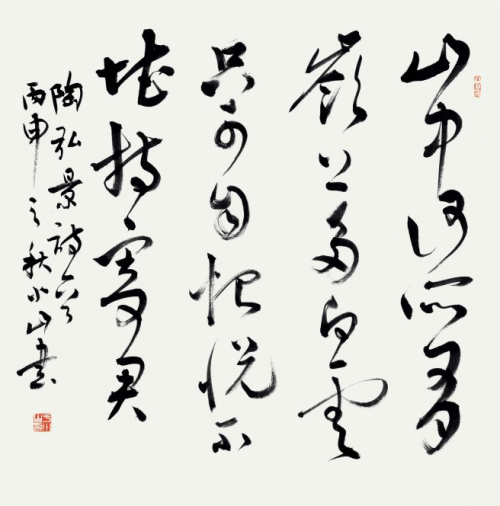 山中何所有
嶺上多白雲
只可自怡悅不
堪持寄君
陶弘景詩一首
丙申之秋小山書